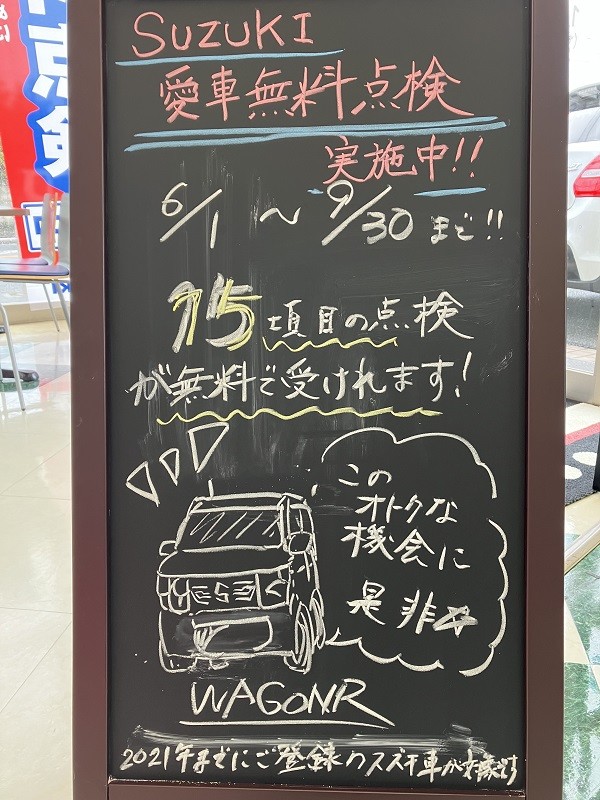 SUZUKI
愛車無料点検
実施中!!
6/1～9/30まで!!
15項目の点検
が無料で受けれます!
この
オトクな
機会に
是非☆
WAGONR
2021年までにご登録のスズキ車が対象です
点検